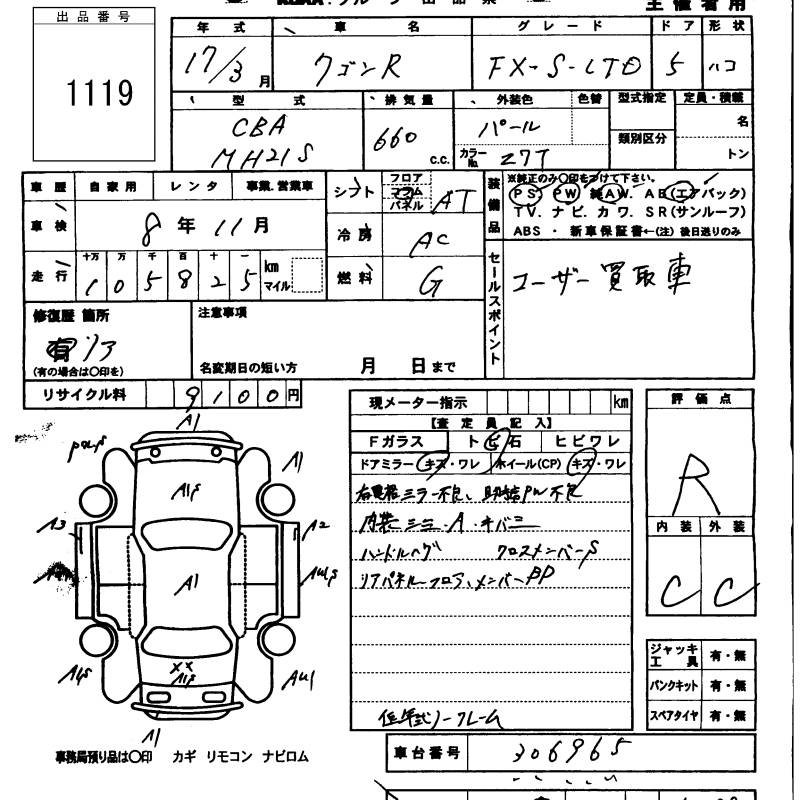 出品番号
1119
主催者用
年式 車名 グレード ドア 形状
17/3月 ワゴンR FX-S-LTD 5 ハコ
型式 排気量 外装色 色替 型式指定 定員・積載
CBA
MH21S
660 c.c.
パール
カラーNo. Z7T
類別区分
名
トン
車歴 自家用 レンタ 事業.営業車
車検 8年11月
走行 十万 万 千 百 十 一
105825 km
マイル
シフト フロア
コラム
パネル
AT
冷房 AC
燃料 G
装備品
※純正のみ○印をつけて下さい。
PS. PW. 純AW. AB(エアバック)
TV. ナビ. カワ. SR(サンルーフ)
ABS ・ 新車保証書←(注) 後日送りのみ
セールスポイント
ユーザー買取車
修復歴 箇所
有 リア
(有の場合は○印を)
注意事項
名変期日の短い方 月 日まで
リサイクル料 9100円
現メーター指示 km
【査定員記入】
Fガラス トビ石 ヒビワレ
ドアミラー キズ・ワレ ホイール(CP) キズ・ワレ
内装シミ・A・キバミ
ハンドルハゲ クロスメンバーS
リアパネル、フロア、メンバーBP
低年式ノークレーム
評価点
R
内装 外装
C C
ジャッキ
工具 有・無
パンクキット 有・無
スペアタイヤ 有・無
A1
A1S
A1
A3
A2
A1
A1S
XX
A1S
A1
事務局預り品は○印 カギ リモコン ナビロム
車台番号 306965